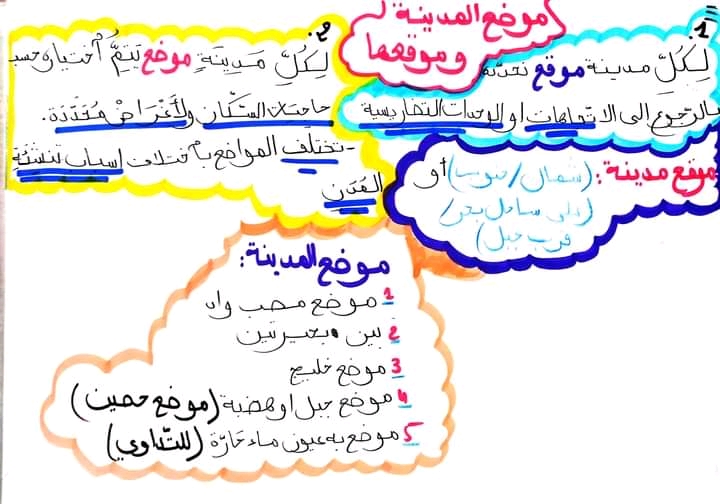 موضع المدينة
وموقعها
1.
لِكُلِّ مدينة موقع نحدّده
بالرّجوع إلى الاتجاهات او الوحدات التضاريسية
موقع مدينة: (شمال/جنوب) أو
(على ساحل بحر/
قرب جبل)
2.
لِكُلِّ مَدينَةٍ موضع يَتِمُّ اختياره حسب
حاجيات السّكّان ولأغْرَاضْ مُحَدَّدَة.
- تختلف المواضع باختلاف أسباب تنشئة
المُدُنِ
موضع المدينة:
1 موضع مصب واد
2 بين بحيرتين
3 موضع خليج
4 موضع جبل او هضبة (موضع حصين)
5 موضع به عيون ماء حَارّة (للتّداوي)